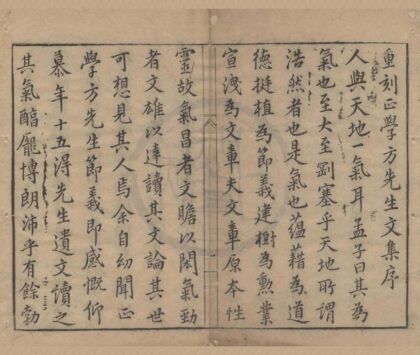 重刻正學方先生文集序
人與天地一氣耳孟子曰其為
氣也至大至剛塞乎天地所謂
浩然者也是氣也蘊藉為道
德挺植為節義建樹為勲業
宣洩為文章夫文章原本性
靈故氣昌者文贍以閎氣勁
者文雄以達讀其文論其世
可想見其人焉余自幼聞正
學方先生節義即感慨仰
慕年十五淂先生遺文讀之
其氣醞龐博朗沛乎有餘勃